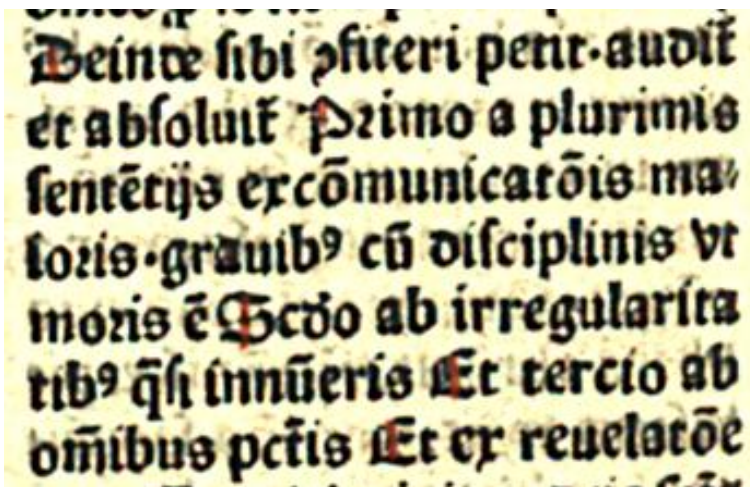 Deinde sibi ꝯfiteri petit·audit̄
et absoluit̄ Primo a plurimis
sentētijs excōmunicatōis ma⸗
ioris·grauibꝰ cū disciplinis vt
moris ē Scd̄o ab irregularita
tibꝰ q̄si innūeris Et tercio ab
om̄ibus pct̄is Et ex reuelatōe